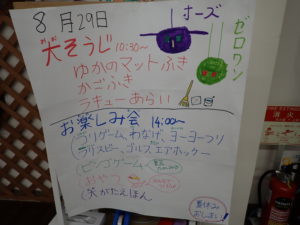 8月29日
オーズ
ゼロワン
大そうじ 10:30~
ゆかのマットふき
かごふき
ラキューあらい
お楽しみ会 14:00~
ラリゲーム、わなげ、ヨーヨーつり
フリスビー、ゴルフ、エアホッケー
ビンゴゲーム
おやつ
大がたえほん
夏休み
おしまい!
消火